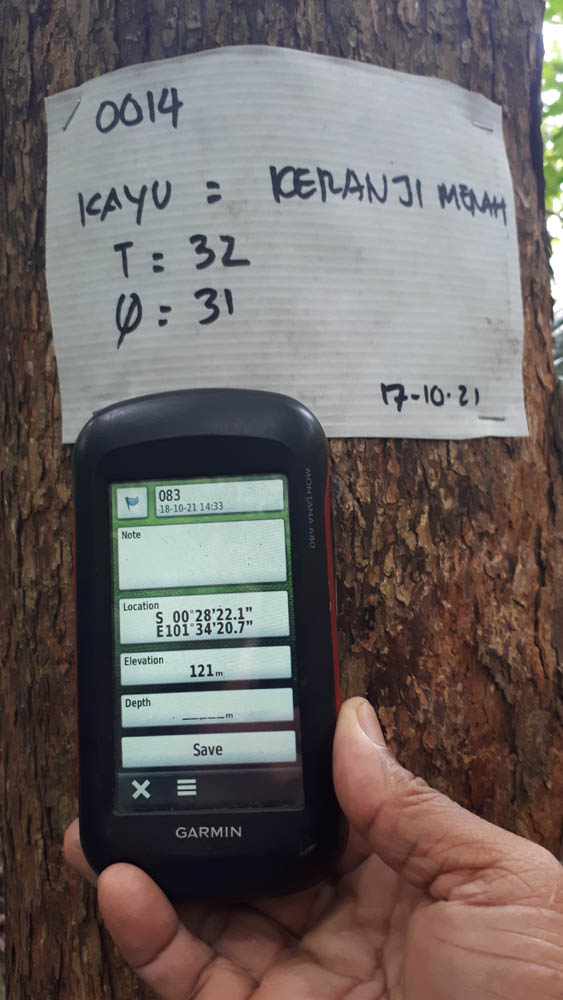 0014
KAYU = KERANJI MERAH
T = 32
Ø = 31
17-10-21
MONTANA 680
083
18-10-21 14:33
Note
Location
S 00°28'22.1"
E101°34'20.7"
Elevation
121m
Depth
_____m
Save
GARMIN